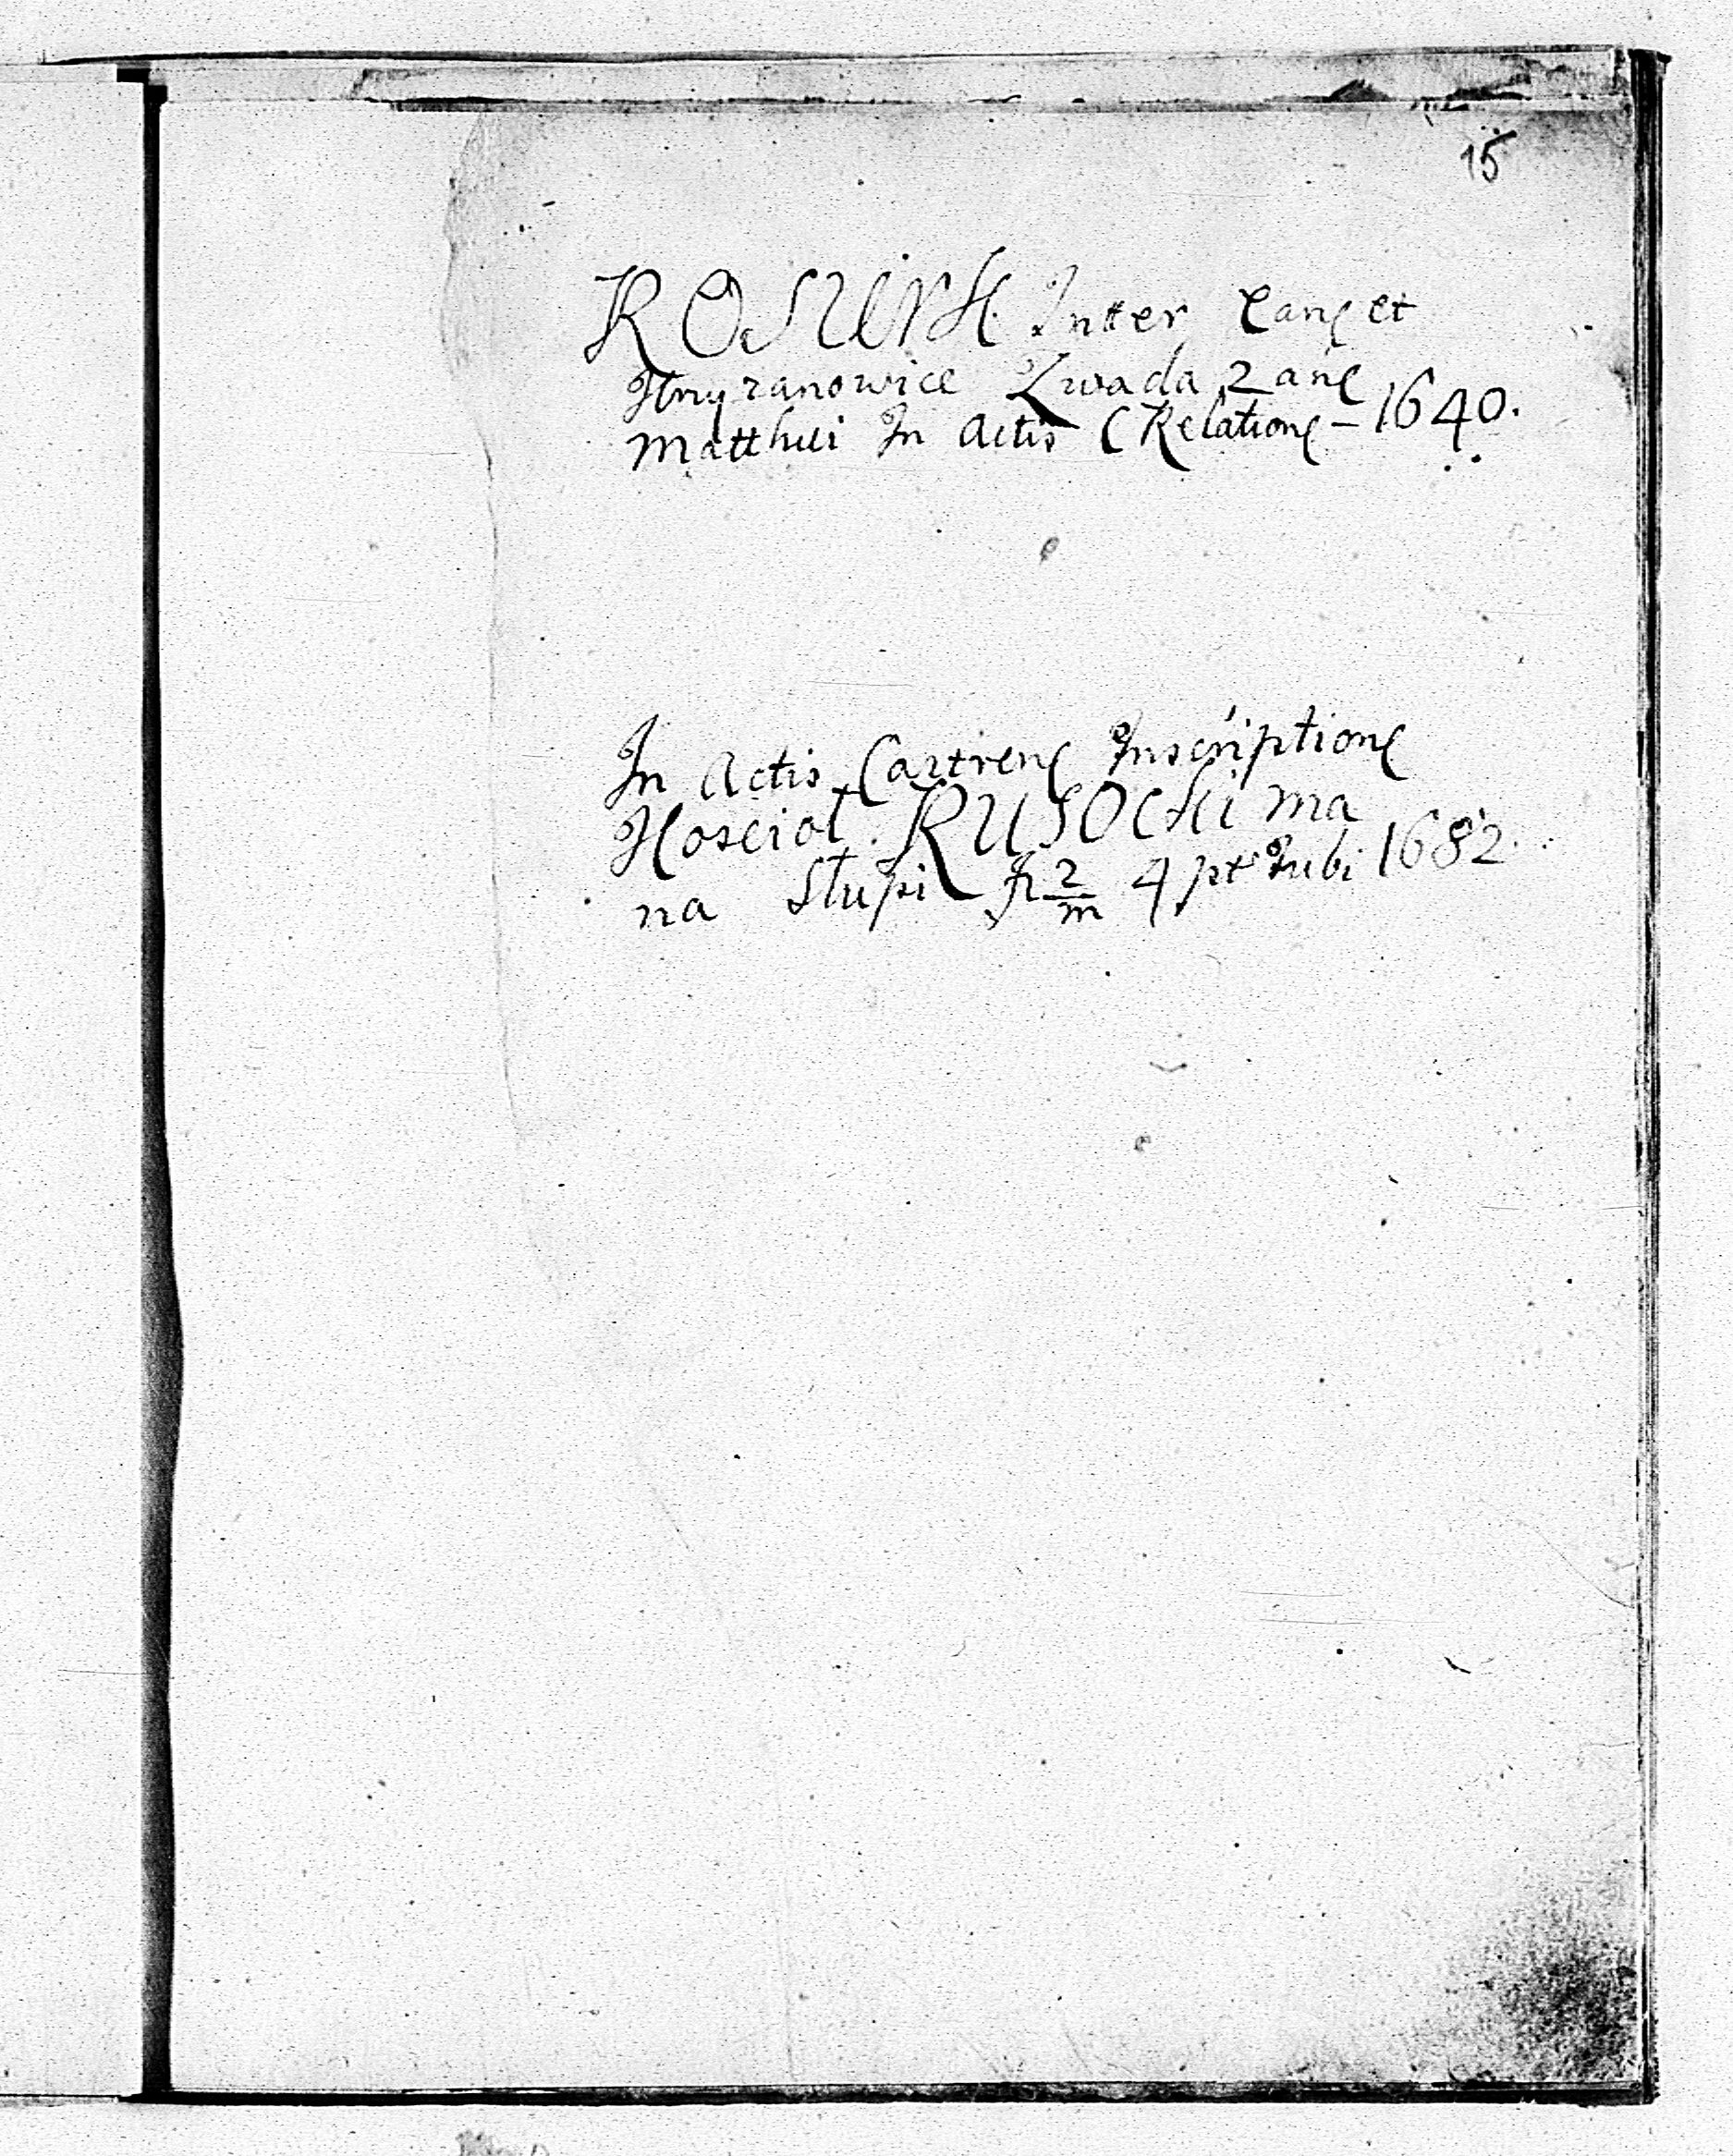 15
ROSUNH Inter Canc et
Hmyzanowice Zwada Zanc
Matthei In Actis C Relationc – 1640.
In Actis Castrenc Inscriptionc
Kosciol. RUSOCHi ma
na Stupi fl 2/m 4 pt Iubi 1682.